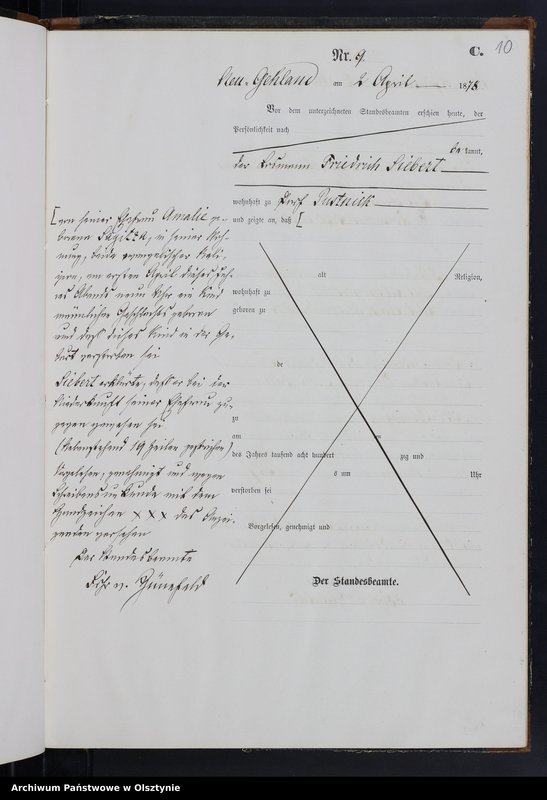 10
Nr. 9.
C.
Neu-Gehland am 2 April 1878
Vor dem unterzeichneten Standesbeamten erschien heute, der
Persönlichkeit nach
be kannt,
der Friedrich Siebert
wohnhaft zu Dorf Pustnick
und zeigte an, daß [
[von seiner Ehefrau Amalie ge-
borene in seiner Woh-
nung, beide evangelischer Reli-
gion, am ersten April dieses Jah-
res Abends neun Uhr ein Kind
männlichen Geschlechts geboren
und daß dieses Kind in der Ge-
burt verstorben sei
Siebert erklärte, daß er bei der
Niederkunft seiner Ehefrau zu-
gegen gewesen sei
(Nebenstehend 19 Zeilen gestrichen)
Vorgelesen, genehmigt und wegen
Schreibensunkunde mit dem
Handzeichen x x x des Anzei-
genden versehen
Der Standesbeamte
alt
Religion,
wohnhaft zu
geboren zu
de
zu
am
des Jahres tausend acht hundert zig und
s um Uhr
verstorben sei
Vorgelesen, genehmigt und
Der Standesbeamte.
Archiwum Państwowe w Olsztynie